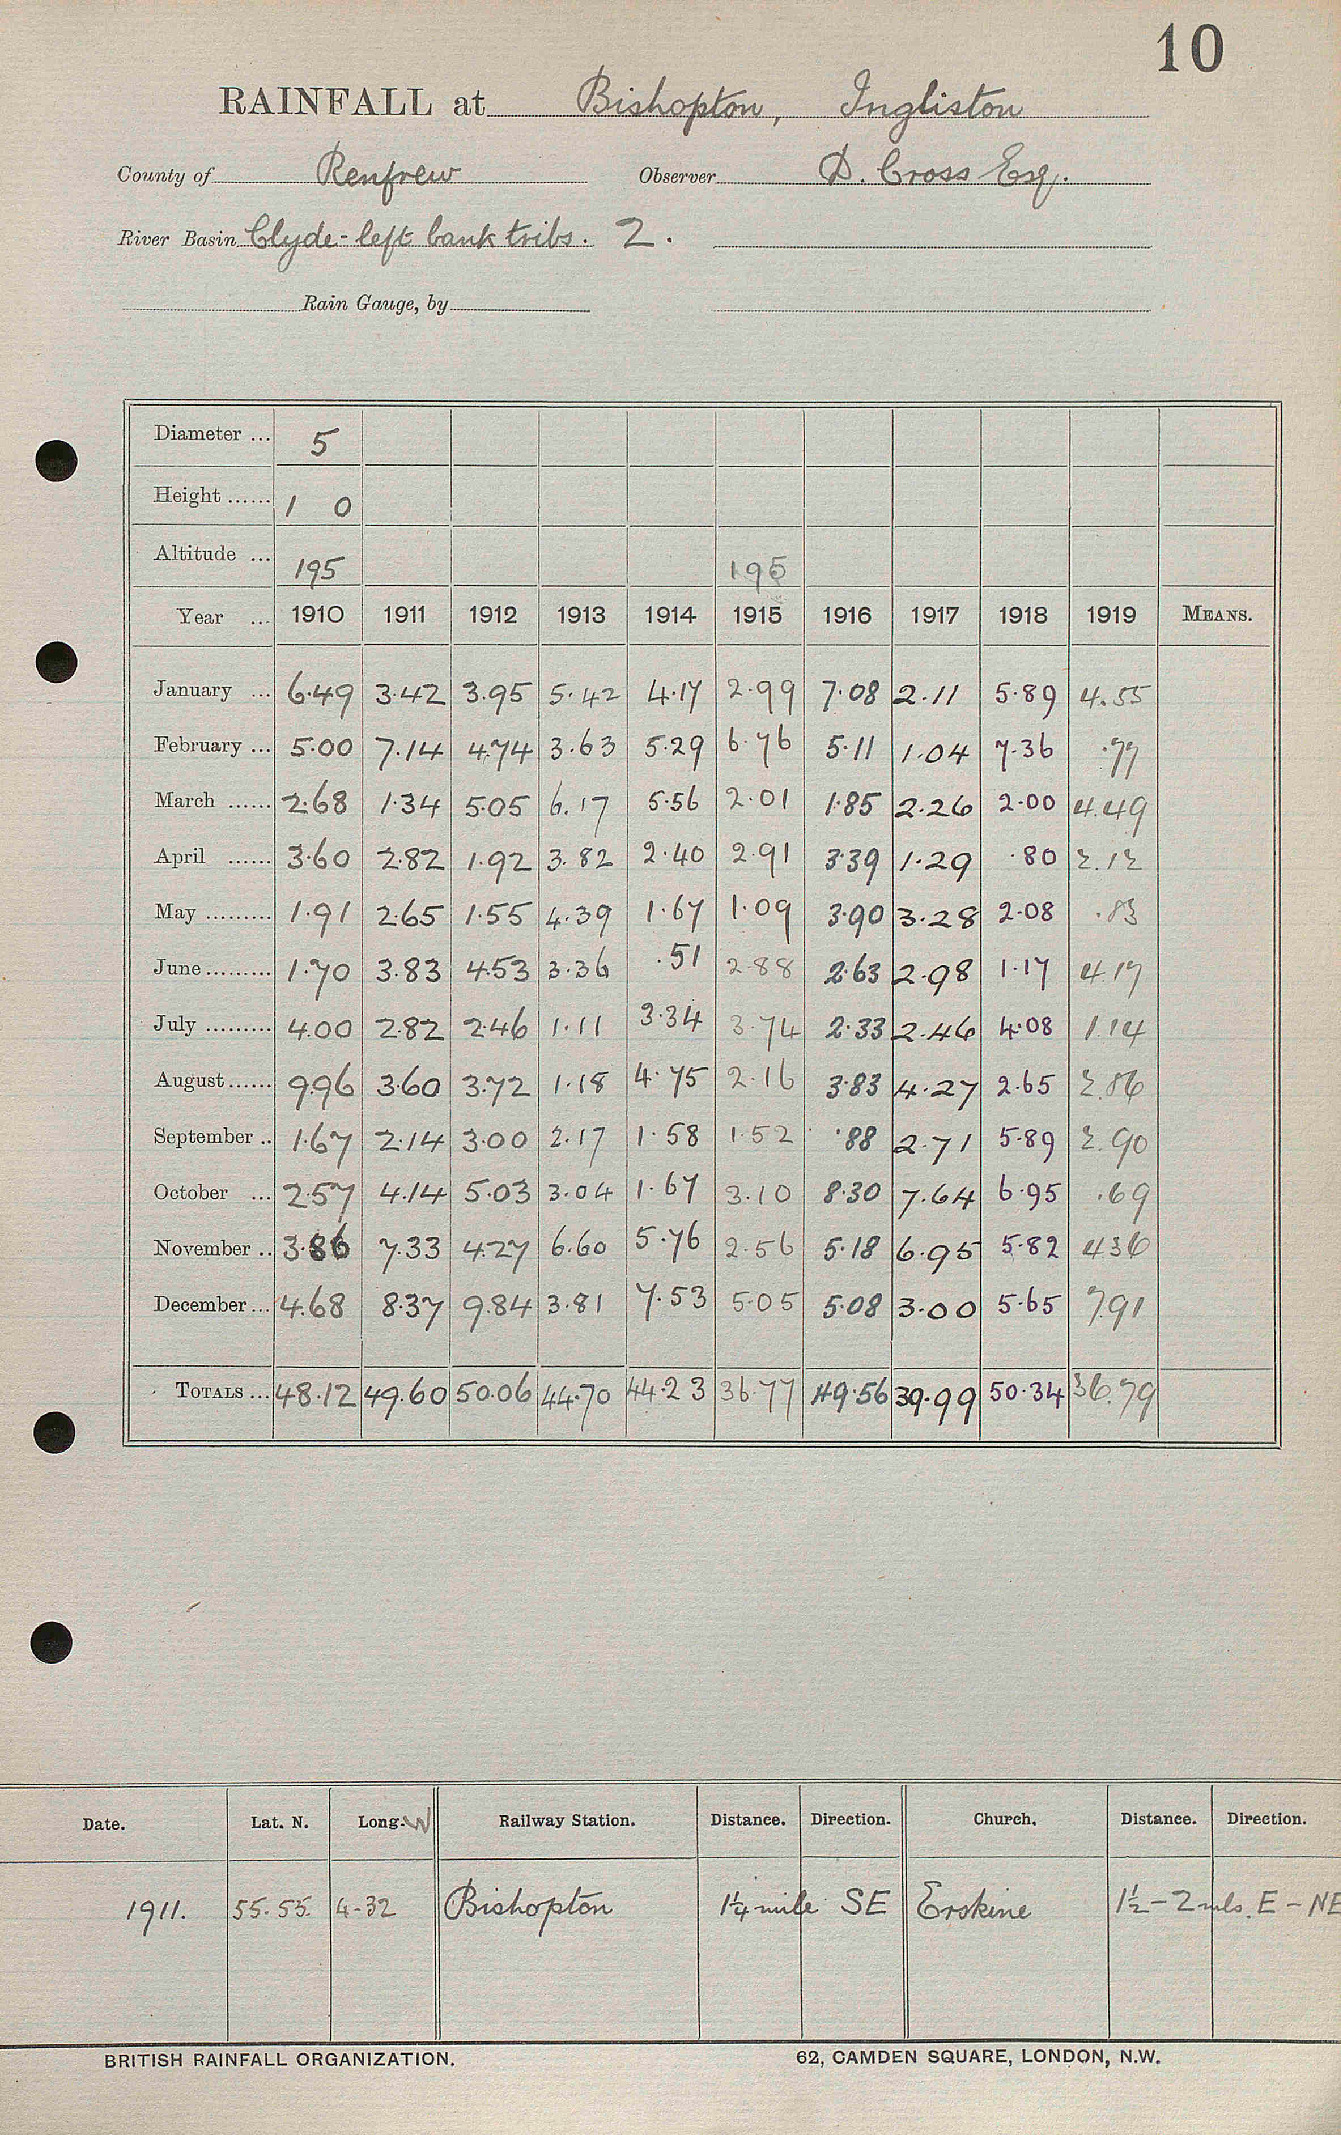 10
RAINFALL at Bishopton, Ingliston
County of Renfrew Observer D. Cross Esq.
River Basin Clyde - left bank tribs. 2.
Rain Gauge, by
Diameter ... 5
Height ...... 1 0
Altitude ... 195 195
Year ... 1910 1911 1912 1913 1914 1915 1916 1917 1918 1919 MEANS.
January ... 6.49 3.42 3.95 5.42 4.17 2.99 7.08 2.11 5.89 4.55
February ... 5.00 7.14 4.74 3.63 5.29 6.76 5.11 1.04 7.36 .77
March ...... 2.68 1.34 5.05 6.17 5.56 2.01 1.85 2.26 2.00 4.49
April ...... 3.60 2.82 1.92 3.82 2.40 2.91 3.39 1.29 .80 2.12
May ......... 1.91 2.65 1.55 4.39 1.67 1.09 3.90 3.28 2.08 .83
June ......... 1.70 3.83 4.53 3.36 .51 2.88 2.63 2.98 1.17 4.17
July ......... 4.00 2.82 2.46 1.11 3.34 3.74 2.33 2.46 4.08 1.14
August ...... 9.96 3.60 3.72 1.18 4.75 2.16 3.83 4.27 2.65 2.86
September .. 1.67 2.14 3.00 2.17 1.58 1.52 .88 2.71 5.89 2.90
October ... 2.57 4.14 5.03 3.04 1.67 3.10 8.30 7.64 6.95 .69
November .. 3.86 7.33 4.27 6.60 5.76 2.56 5.18 6.95 5.82 4.36
December ... 4.68 8.37 9.84 3.81 7.53 5.05 5.08 3.00 5.65 7.91
TOTALS ... 48.12 49.60 50.06 44.70 44.23 36.77 49.56 39.99 50.34 36.79
Date. Lat. N. Long. W Railway Station. Distance. Direction. Church. Distance. Direction.
1911. 55.55. 4-32 Bishopton 1¼ mile SE Erskine 1½ - 2 mls. E - NE
BRITISH RAINFALL ORGANIZATION. 62, CAMDEN SQUARE, LONDON, N.W.